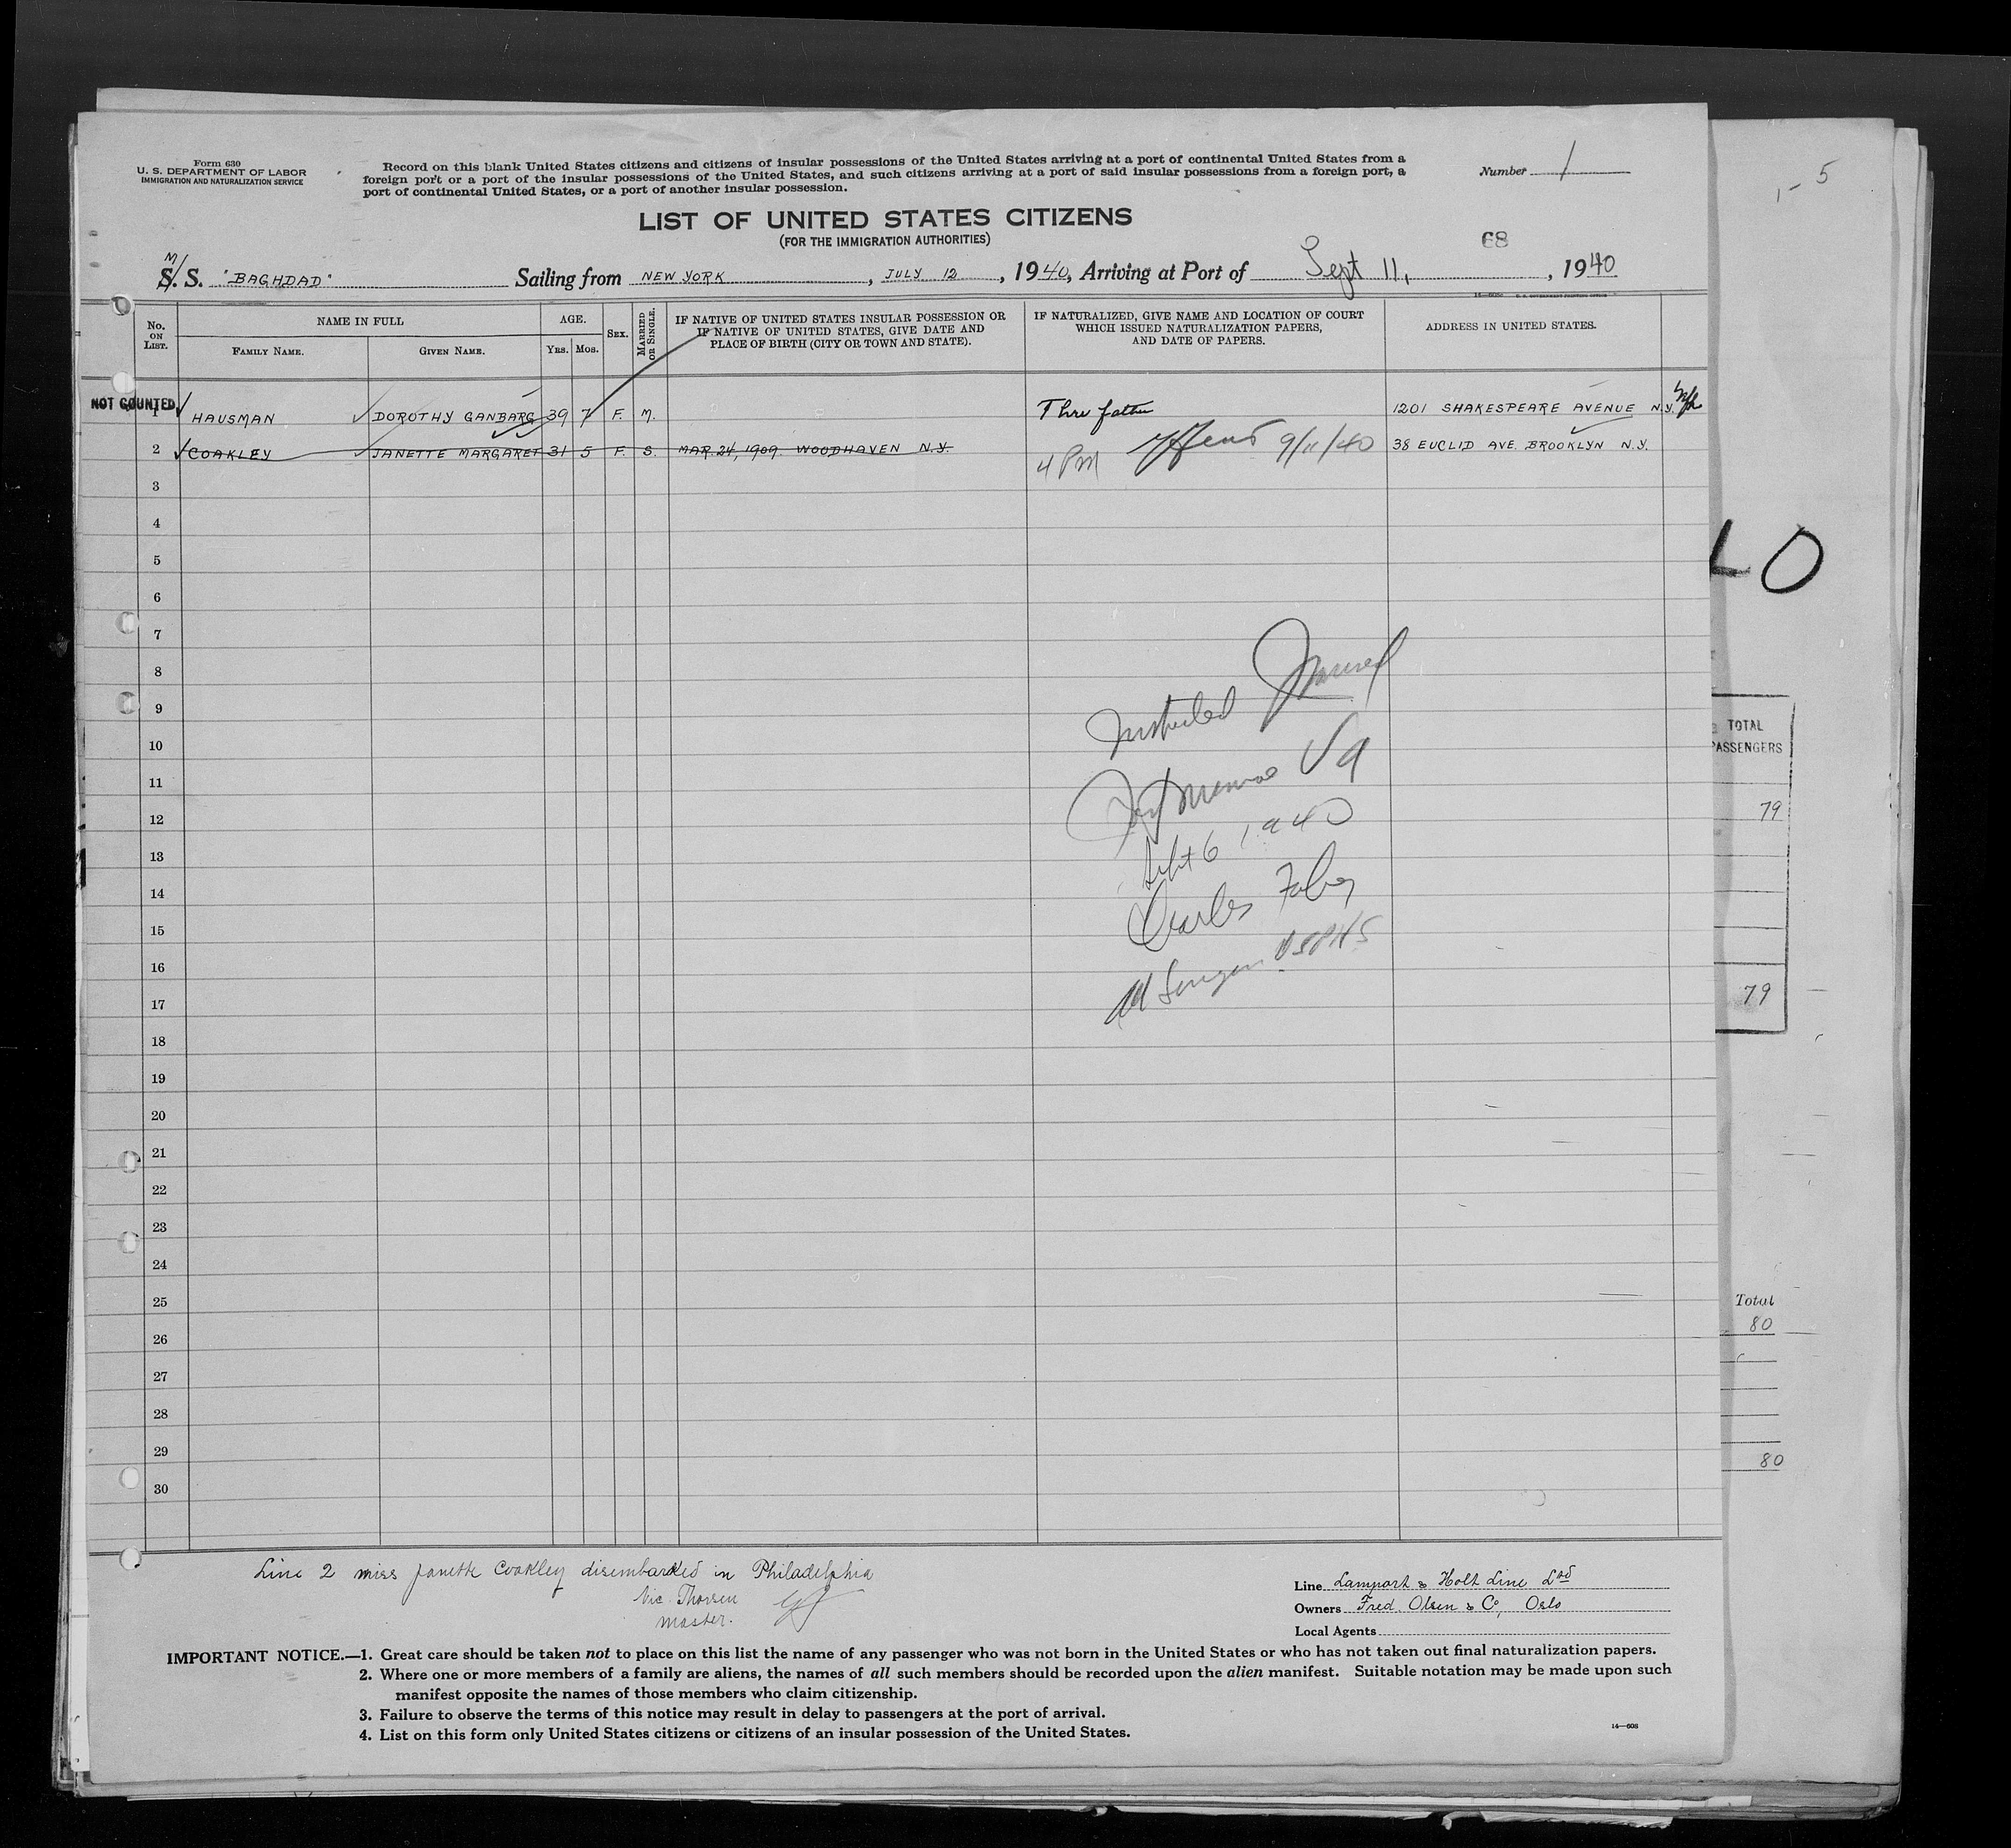 Form 630
U. S. DEPARTMENT OF LABOR
IMMIGRATION AND NATURALIZATION SERVICE
Record on this blank United States citizens and citizens of insular possessions of the United States arriving at a port of continental United States from a
foreign port or a port of the insular possessions of the United States, and such citizens arriving at a port of said insular possessions from a foreign port, a
port of continental United States, or a port of another insular possession.
Number 1
5
LIST OF UNITED STATES CITIZENS
(FOR THE IMMIGRATION AUTHORITIES)
68
M/S. S. "BAGHDAD" Sailing from NEW YORK, JULY 12, 1940, Arriving at Port of Sept 11, 1940
No. ON LIST.
NAME IN FULL
FAMILY NAME.
GIVEN NAME.
AGE.
YRS.
MOS.
SEX.
MARRIED OR SINGLE.
IF NATIVE OF UNITED STATES INSULAR POSSESSION OR
IF NATIVE OF UNITED STATES, GIVE DATE AND
PLACE OF BIRTH (CITY OR TOWN AND STATE).
IF NATURALIZED, GIVE NAME AND LOCATION OF COURT
WHICH ISSUED NATURALIZATION PAPERS,
AND DATE OF PAPERS.
ADDRESS IN UNITED STATES.
NOT COUNTED
1 HAUSMAN DOROTHY GANBARG 39 7 F. M. Thru father 1201 SHAKESPEARE AVENUE N.Y.
2 COAKLEY JANETTE MARGARET 31 5 F. S. MAR. 24, 1909 WOODHAVEN N.Y. 38 EUCLID AVE. BROOKLYN N.Y.
4 PM 9/11/40
3
4
5
6
7
8
9
10
11
12
13
14
15
16
17
18
19
20
21
22
23
24
25
26
27
28
29
30
Inspected
Fort Monroe Va
Sept 6 1940
Charles
Surgeon USPHS
LO
TOTAL
PASSENGERS
79
79
Total
80
80
Line 2 miss Janette Coakley disembarked in Philadelphia
Nic. Thorsen
master.
Line Lamport & Holt Line Ltd
Owners Fred. Olsen & Co, Oslo
Local Agents
IMPORTANT NOTICE.—1. Great care should be taken not to place on this list the name of any passenger who was not born in the United States or who has not taken out final naturalization papers.
2. Where one or more members of a family are aliens, the names of all such members should be recorded upon the alien manifest. Suitable notation may be made upon such
manifest opposite the names of those members who claim citizenship.
3. Failure to observe the terms of this notice may result in delay to passengers at the port of arrival.
4. List on this form only United States citizens or citizens of an insular possession of the United States.
14—608